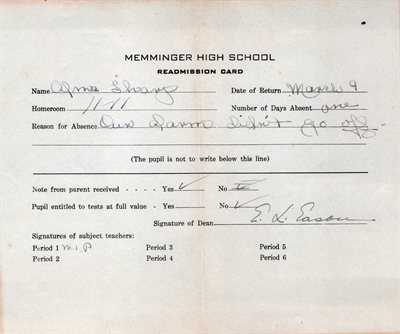 MEMMINGER HIGH SCHOOL
READMISSION CARD
Name Date of Return March 9
Homeroom 11-11 Number of Days Absent one
Reason for Absence Our alarm didn't go off
(The pupil is not to write below this line)
Note from parent received - - - - Yes ✓ No
Pupil entitled to tests at full value - Yes No ✓
Signature of Dean E. L. Eason
Signatures of subject teachers:
Period 1 M.P Period 3 Period 5
Period 2 Period 4 Period 6